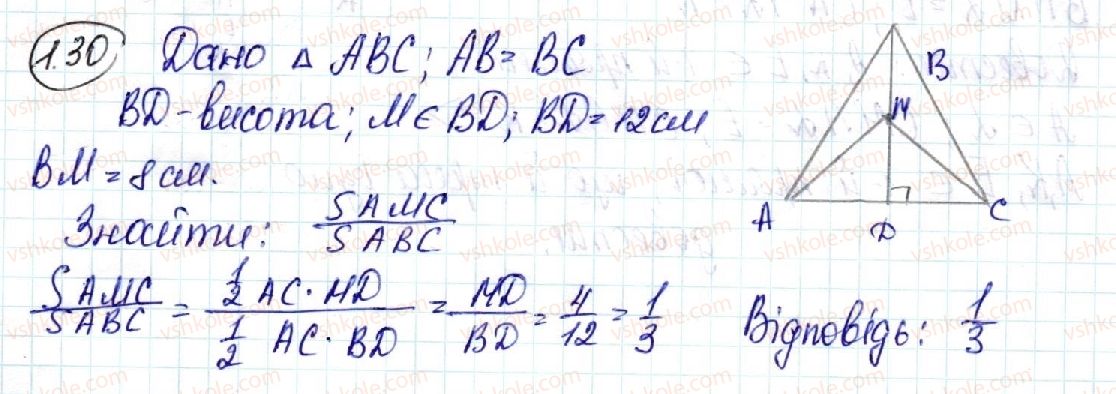 1.30 Дано △ ABC; AB = BC
BD - висота; M ∈ BD; BD = 12 см
BM = 8 см.
Знайти: SAMC/SABC
SAMC/SABC = (1/2 AC · MD)/(1/2 AC · BD) = MD/BD = 4/12 = 1/3 Відповідь: 1/3
B
M
A D C
vshkole.com